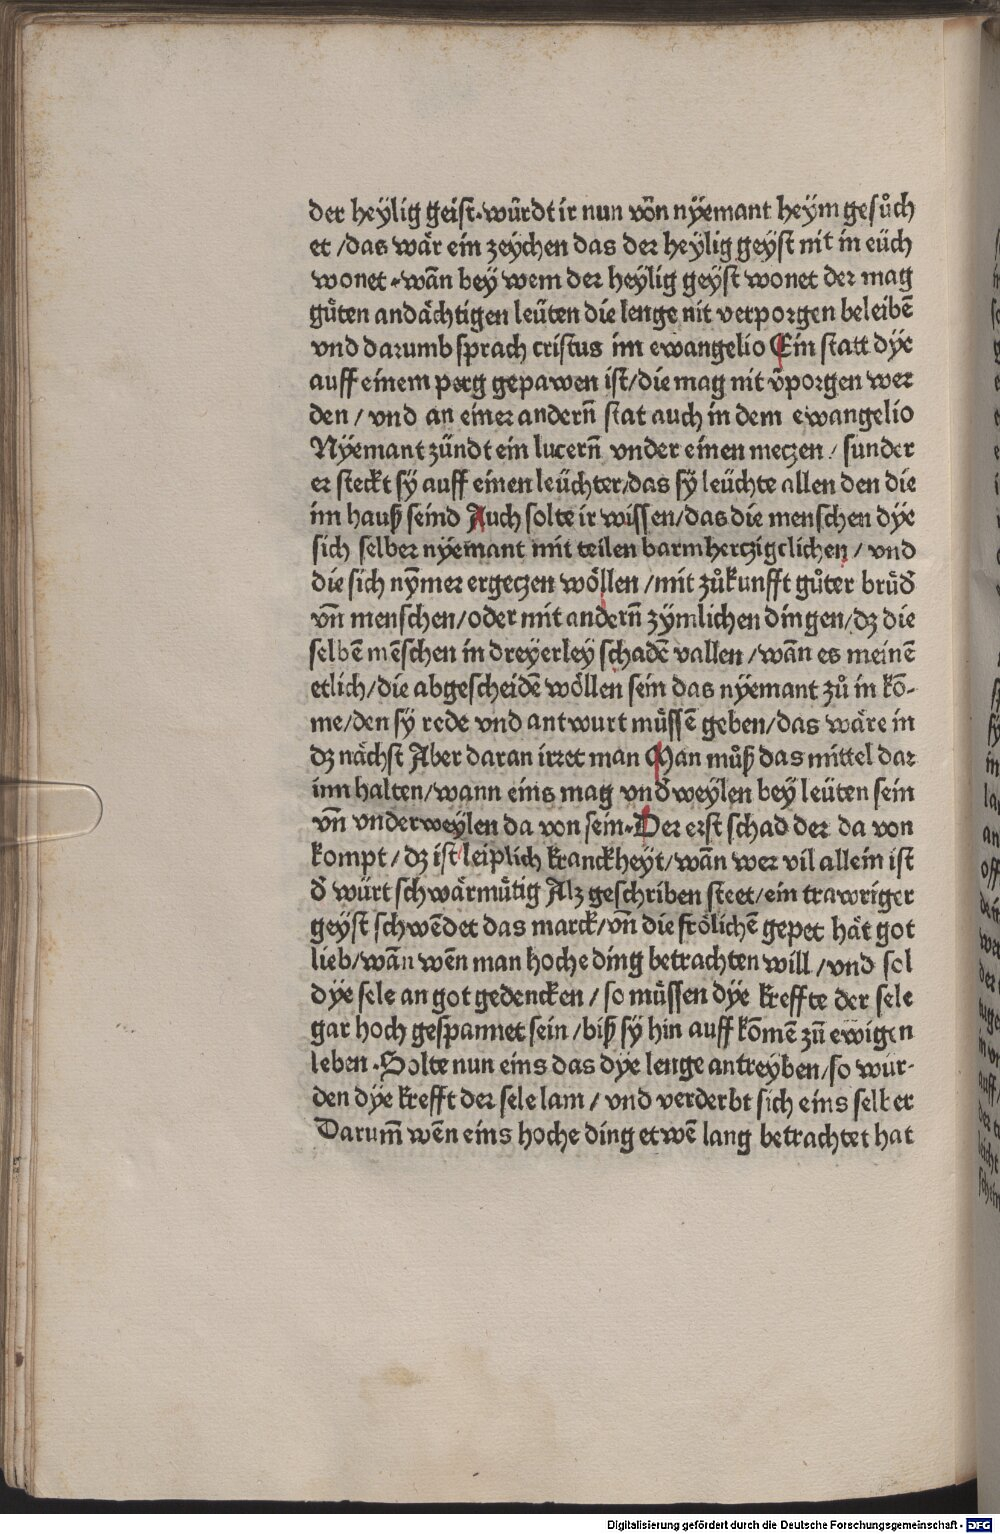 der heylig geist·wu̎rdt ir nun vōn nÿemant heÿm gesůch
et /das wär ein zeÿchen das der heÿlig geÿst nit in eüch
wonet ·wan̄ beÿ wem der heÿlig geÿst wonet der mag
gu̎ten andächtigen leüten die lenge nit verporgen beleibē
vnd darumb sprach cristus im ewangelio Ein statt dÿe
auff einem perg gepawen ist/die mag nit v̄porgen wer
den / vnd an einer andern̄ stat auch in dem ewangelio
Nÿemant zündt ein lucern̄ vnder einen meczen / sunder
er steckt sÿ auff einen leüchter/das sÿ leüchte allen den die
im hauß seind Auch solte ir wissen/das die menschen dÿe
sich selber nÿemant mit teilen barmhercziglichen / vnd
die sich nÿmer ergeczen wöllen /mit zůkunfft gůter brüd̄
vn̄ menschen/oder mit andern̄ zÿmlichen dingen/dz die
selbē mēschen in dreÿerleÿ schadē vallen /wan̄ es meinē
etlich/die abgescheidē wöllen sein das nÿemant zů in kō-
me/den sÿ rede vnd antwurt müssē geben/das wäre in
dz nächst Aber daran irret man Man můß das mittel dar
inn halten/wann eins mag vnd̄weÿlen beÿ leüten sein
vn̄ vnderweÿlen da von sein·Der erst schad der da von
kompt / dz ist leiplich kranckheÿt/wan̄ wer vil allein ist
d̄ würt schwärmu̎tig Alz geschriben steet/ein trawriger
geÿst schwēdet das marck/vn̄ die frölichē gepet hät got
lieb/wan̄ wen̄ man hoche ding betrachten will /vnd sol
dÿe sele an got gedencken / so müssen dÿe kreffte der sele
gar hoch gespannet sein /biß sÿ hin auff kōmē zū ewigen
leben ·Solte nun eins das dÿe lenge antreÿben/so wür-
den dÿe krefft der sele lam / vnd verderbt sich eins selber
Darum̄ wen̄ eins hoche ding etwē lang betrachtet hat
Digitalisierung gefördert durch die Deutsche Forschungsgemeinschaft - DFG